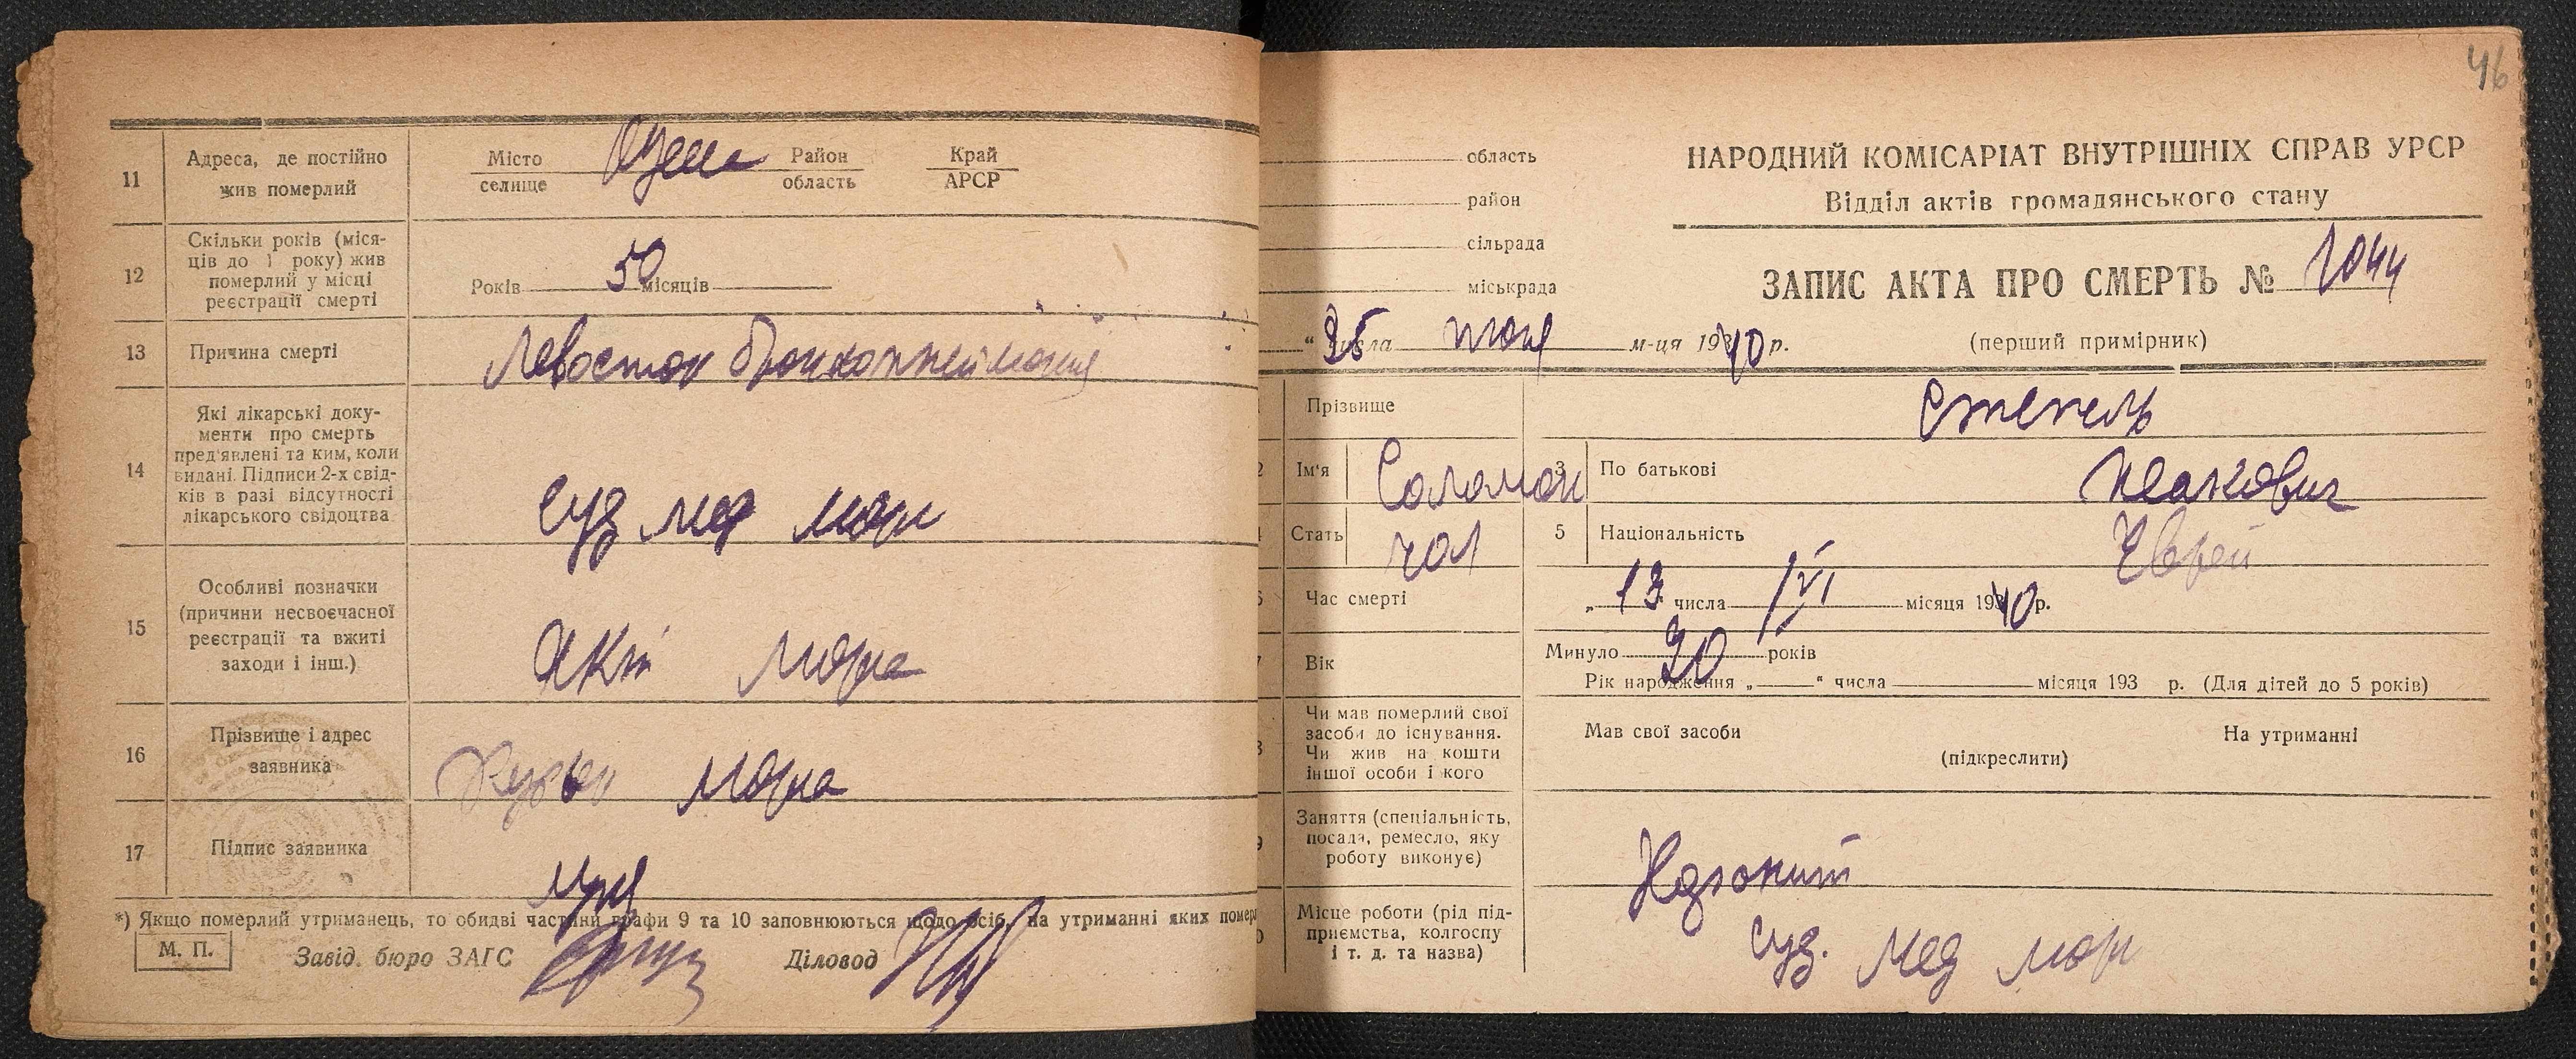 11
Адреса, де постійно
жив померлий
Місто
селище
Одеса
Район
область
Край
АРСР
12
Скільки років (міся-
ців до 1 року) жив
померлий у місці
реєстрації смерті
Років 50 місяців
13
Причина смерті
14
Які лікарські доку-
менти про смерть
пред'явлені та ким, коли
видані. Підписи 2-х свід-
ків в разі відсутності
лікарського свідоцтва
Суд мед морг
15
Особливі позначки
(причини несвоєчасної
реєстрації та вжиті
заходи і інш.)
Акт морга
16
Прізвище і адрес
заявника
морга
17
Підпис заявника
*) Якщо померлий утриманець, то обидві частини графи 9 та 10 заповнюються щодо осіб, на утриманні яких помер
М. П.
Завід. бюро ЗАГС
Діловод
46
область
район
сільрада
міськрада
НАРОДНИЙ КОМІСАРІАТ ВНУТРІШНІХ СПРАВ УРСР
Відділ актів громадянського стану
ЗАПИС АКТА ПРО СМЕРТЬ № 1044
(перший примірник)
" числа м-ця 1940 р.
Прізвище
2 Ім'я Соломон
3 По батькові Исакович
Стать чол
5 Національність Еврей
Час смерті
" 13 числа VI місяця 1940 р.
Вік
Минуло років
Рік народження „ " числа місяця 193 р. (Для дітей до 5 років)
Чи мав померлий свої
засоби до існування.
Чи жив на кошти
іншої особи і кого
Мав свої засоби
(підкреслити)
На утриманні
Заняття (спеціальність,
посада, ремесло, яку
роботу виконує)
Місце роботи (рід під-
приємства, колгоспу
і т. д. та назва)
суд. мед морг